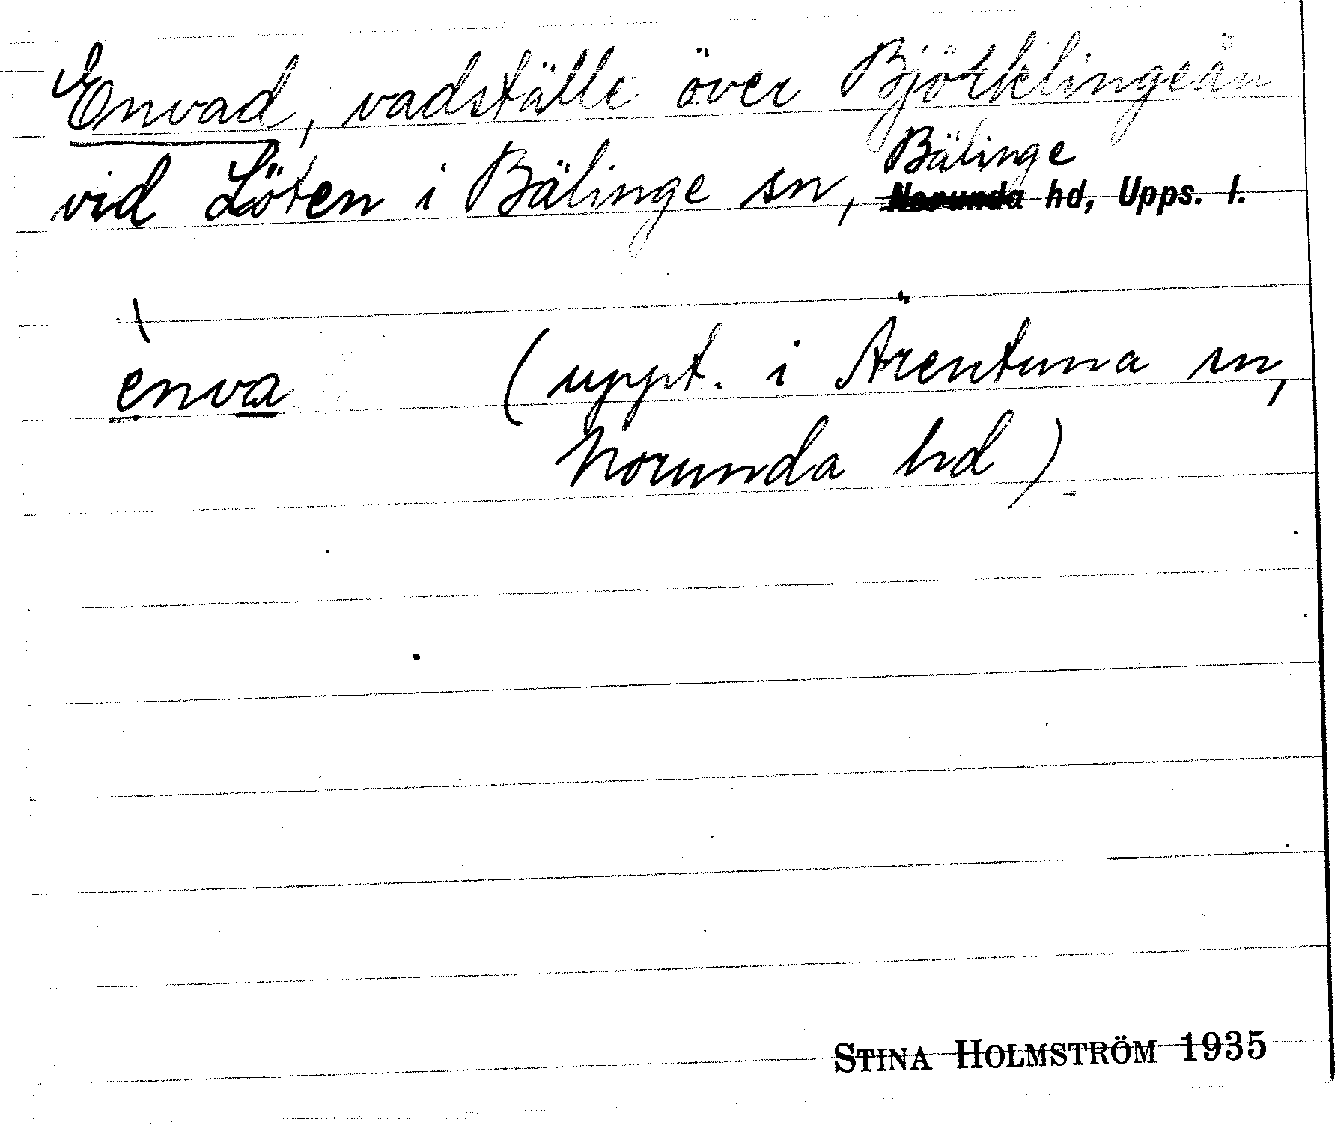 Envad, vadställe över Björklingeån
vid Löten i Bälinge sn, Bälinge ~~Norunda~~ hd, Upps. l.
enva (uppt. i Ärentuna sn,
Norunda hd).
STINA HOLMSTRÖM 1935